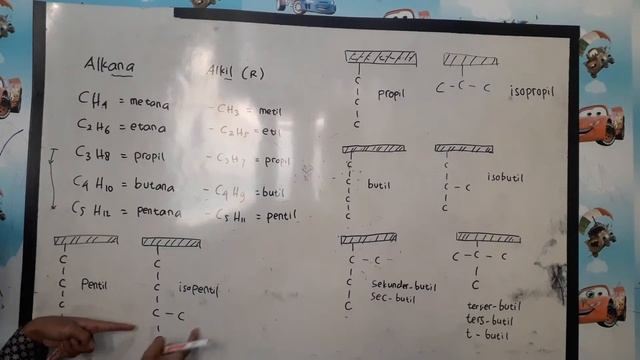 Alkana
CH4 = metana
C2H6 = etana
C3H8 = propil
C4H10 = butana
C5H12 = pentana
Alkil (R)
- CH3 = metil
- C2H5 = etil
- C3H7 = propil
- C4H9 = butil
- C5H11 = pentil
C
C
C
C
propil
C - C - C
isopropil
C
C
C
C
C
butil
C
C
C - C
C
isobutil
C
C
C
C
Pentil
C
C
C
C - C
isopentil
C - C -
C
C
C
sekunder-butil
sec-butil
C - C - C
C
C
terser-butil
ters-butil
t - butil